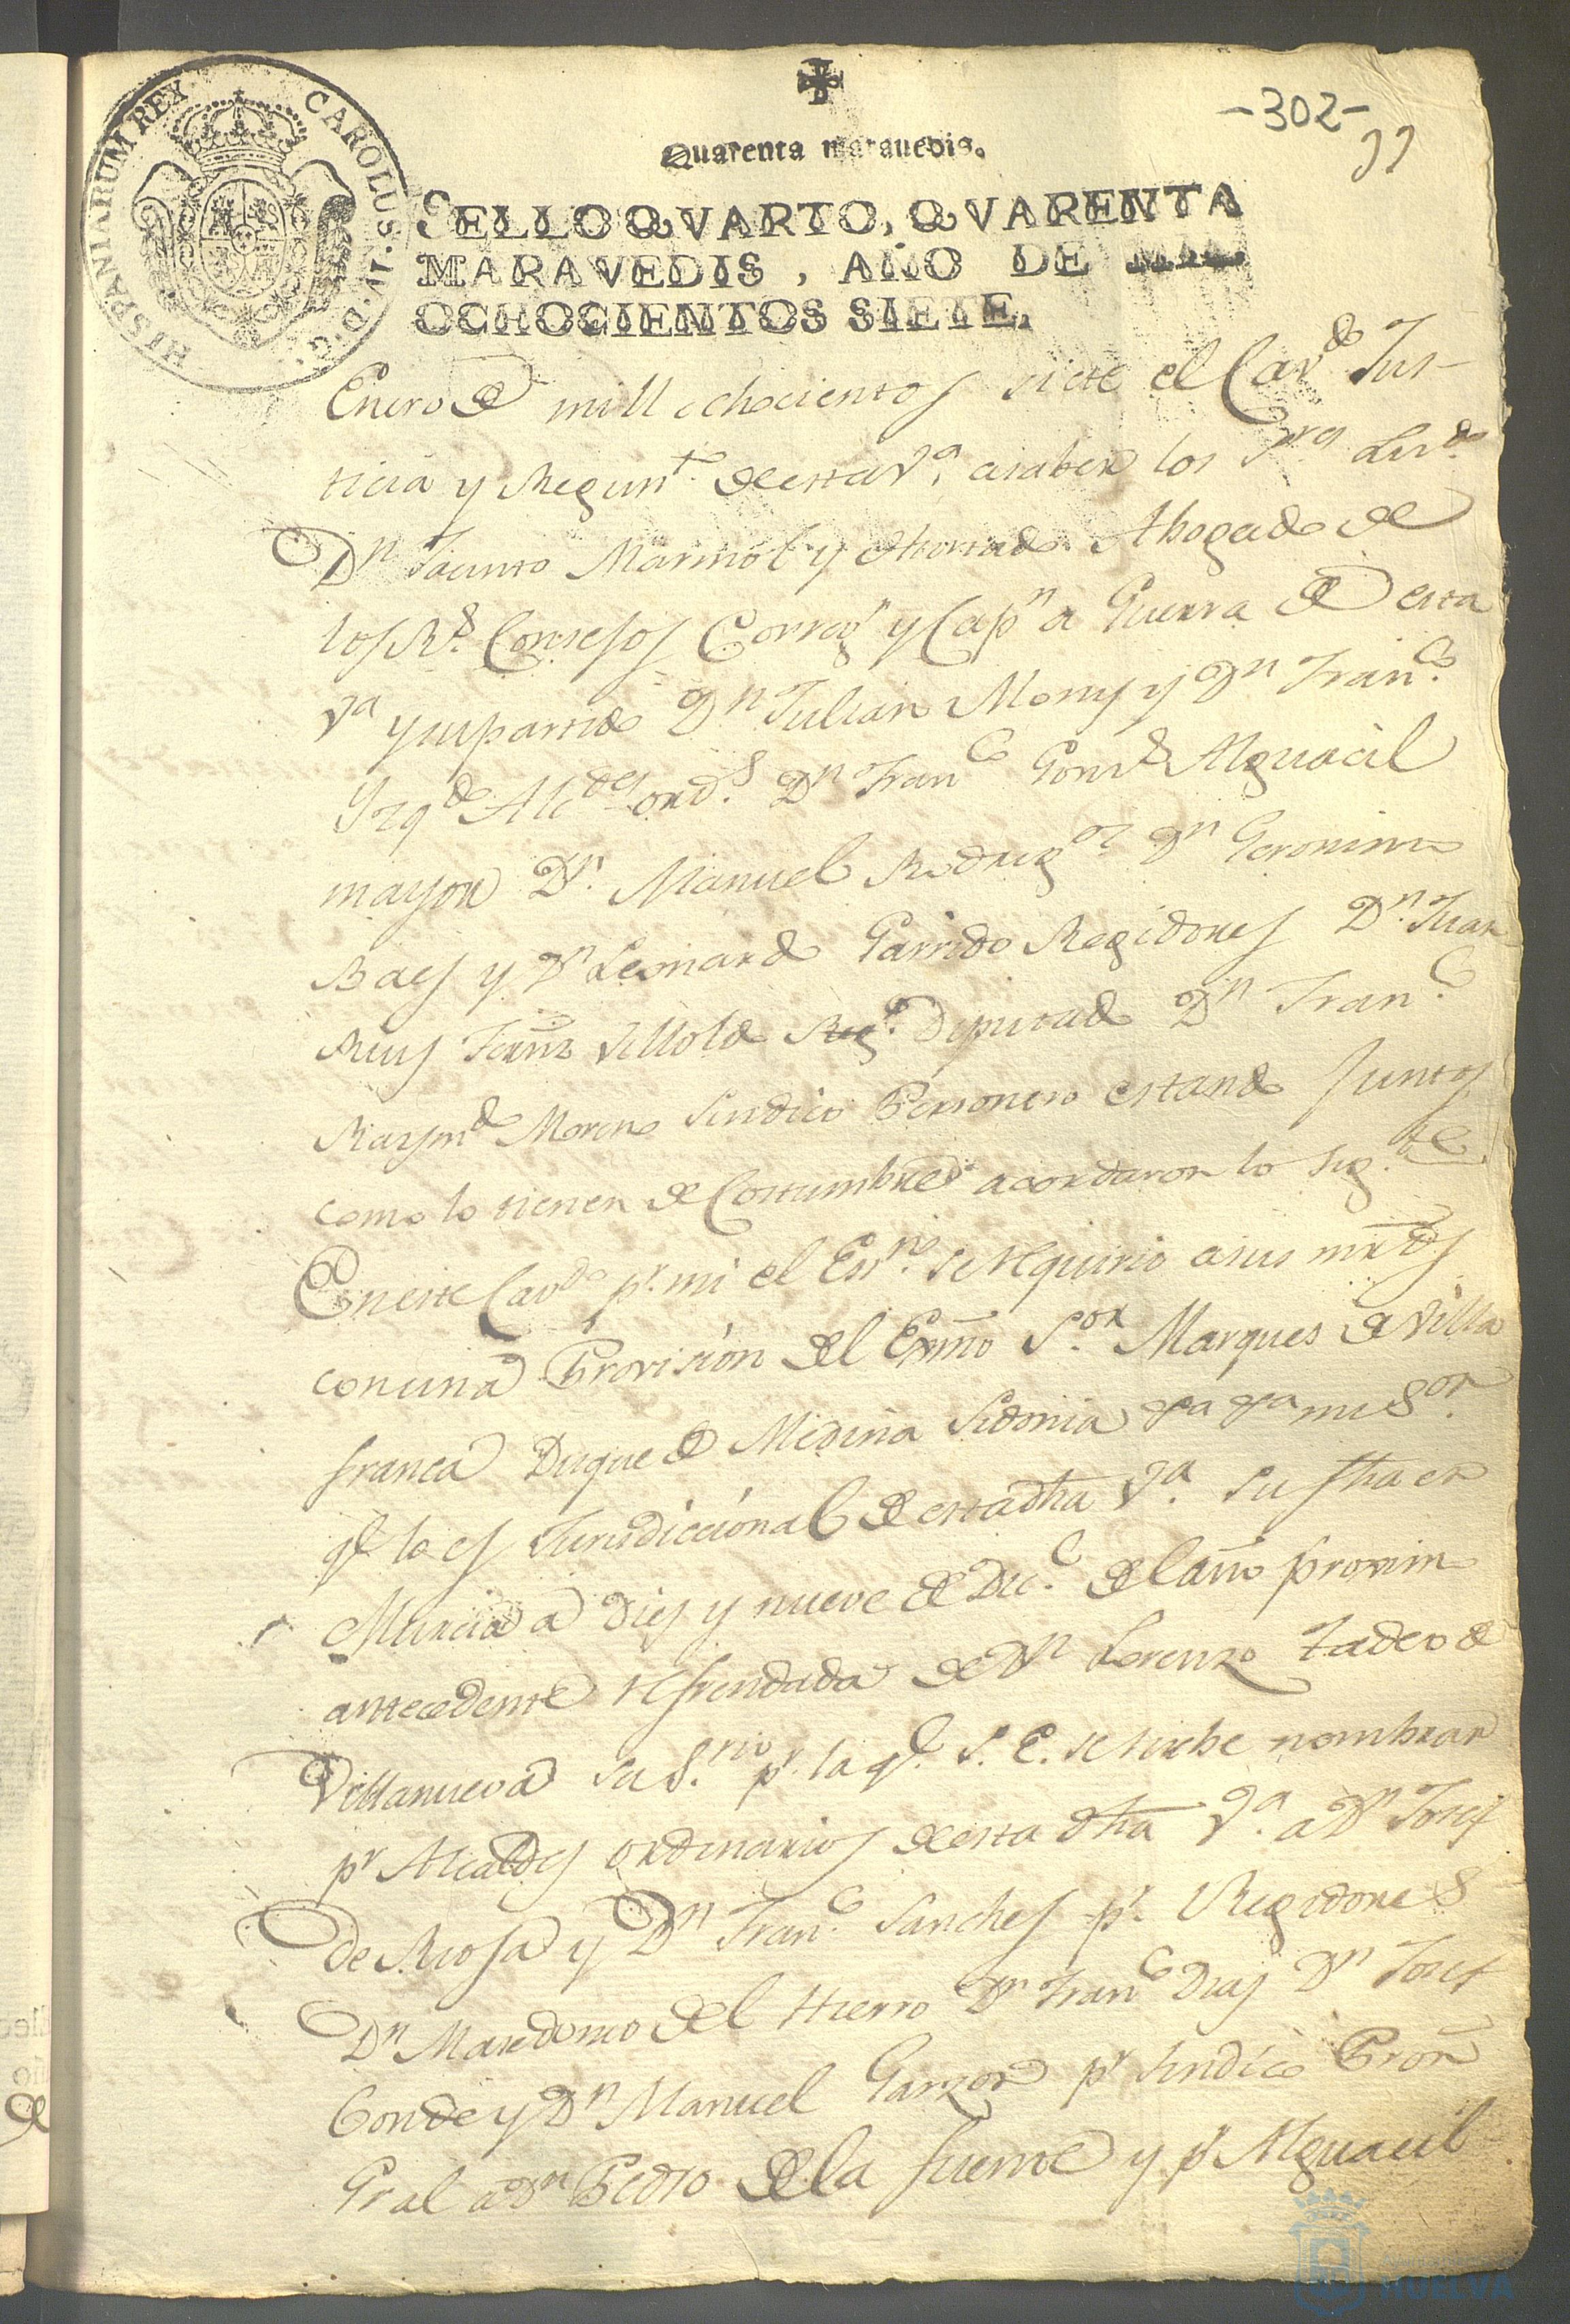 HISPANIARUM REX CAROLUS IV. D. G.
-302-
Quarenta marauedis.
SELLO QVARTO, QVARENTA
MARAVEDIS, AÑO DE MIL
OCHOCIENTOS SIETE.
Enero de mill ochocientos siete el Cavdo Jus-
ticia y Regimto. de esta Va. a saber los Sres Licdo
Dn Jacinto Marmol y Hurtado Abogado de
los Rs. Consejos Corregr y Capn a Guerra de esta
Va y su partido Dn Julian Mony y Dn Franco.
Izqdo Alcdes ords. Dn Franco Gonz Alguacil
mayor Dn. Manuel Rodrigz Dn Geronimo
Baes y Dn Leonardo Garrido Regidores Dn. Juan
Ruis Fernz Diputado Dn Franco.
Raymdo Moreno Sindico Personero estando juntos
como lo tienen de Costumbre acordaron lo sigte.
En este Cavdo pr. mi el Essno. se requirio a sus mrdes
con una Provision del Exmo Sor. Marques de Villa
franca Duque de Medina Sidonia mi Sor.
qe lo es Jurisdiccional de esta dha Va. su fha en
Murcia a dies y nueve de Dice. del año proximo
antecedente refrendada de Dn Lorenzo Tadeo de
Villanueva su Srio. pr. la qe. S. E. se sirbe nombrar
pr Alcaldes ordinarios de esta dha Va. a Dn Josef
de Riosa y Dn Franco. Sanches pr. Regidores
Dn Macedonio del Hierro Dn Franco Dias Dn Josef
Conde y Dn Manuel Garzon pr Sindico Pror
Gral a Dn Pedro de la Fuente y pr Alguacil
HUELVA